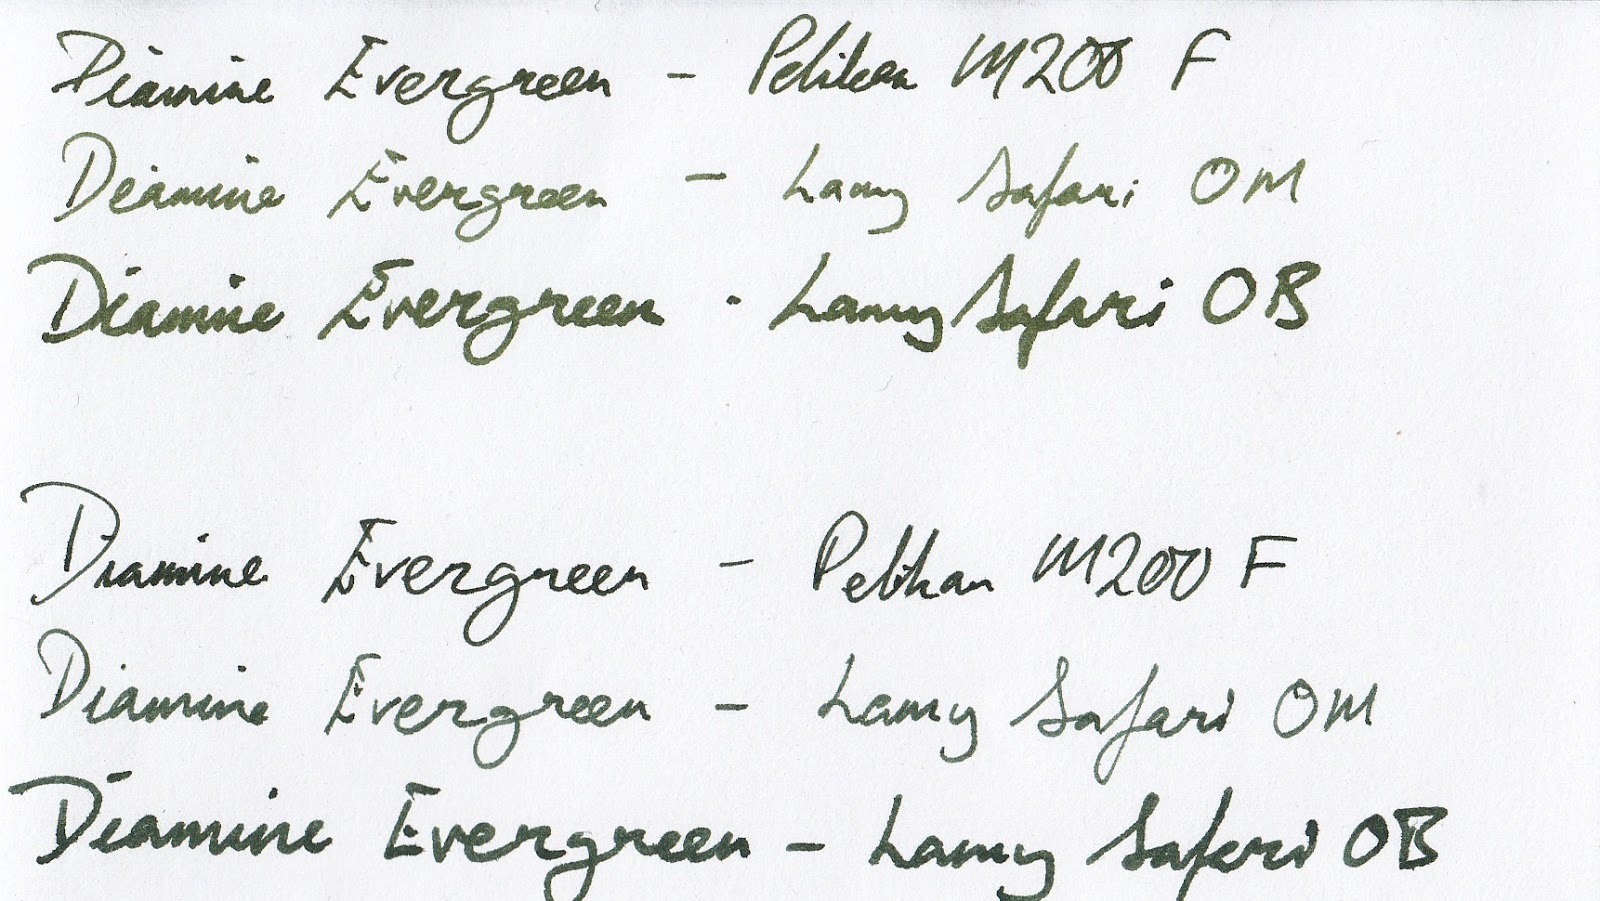 Diamine Evergreen - Pelikan M200 F
Diamine Evergreen - Lamy Safari OM
Diamine Evergreen - Lamy Safari OB
Diamine Evergreen - Pelikan M200 F
Diamine Evergreen - Lamy Safari OM
Diamine Evergreen - Lamy Safari OB